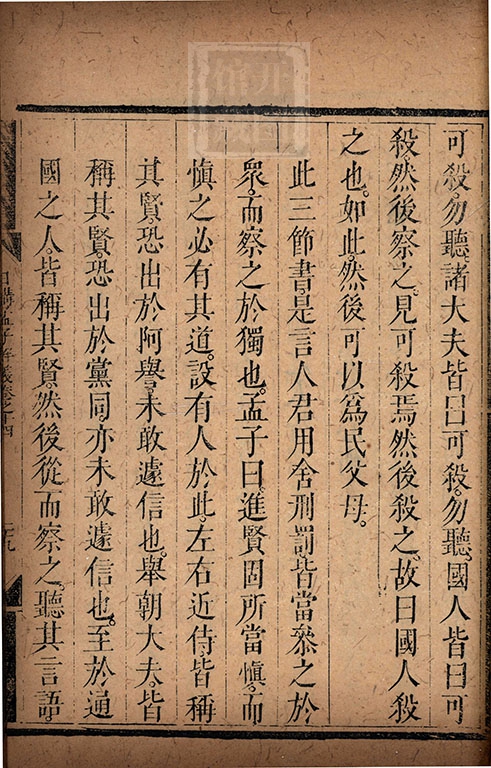 可殺。勿聽。諸大夫皆曰可殺。勿聽。國人皆曰可
殺。然後察之。見可殺焉。然後殺之。故曰國人殺
之也。如此。然後可以爲民父母。
此三節書。是言人君用舍刑罰。皆當叅之於
衆。而察之於獨也。孟子曰。進賢固所當愼。而
愼之必有其道。設有人於此。左右近侍。皆稱
其賢。恐出於阿譽。未敢遽信也。舉朝大夫。皆
稱其賢。恐出於黨同。亦未敢遽信也。至於通
國之人。皆稱其賢。然後從而察之。聽其言語。
日講孟子解義卷之十四